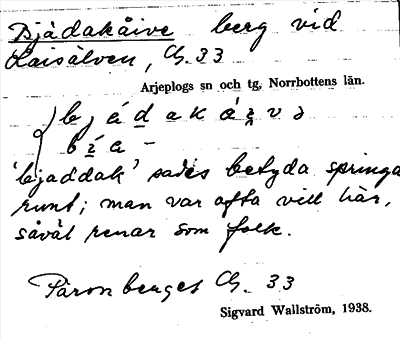 Bjádakåive berg vid
Laisälven, Ch. 33
Arjeplogs sn och tg, Norrbottens län.
b j á d a k å
b á a -
'bjaddak' sades betyda springa
runt; man var ofta vill här,
såväl renar som folk.
Päronberget Ch. 33
Sigvard Wallström, 1938.